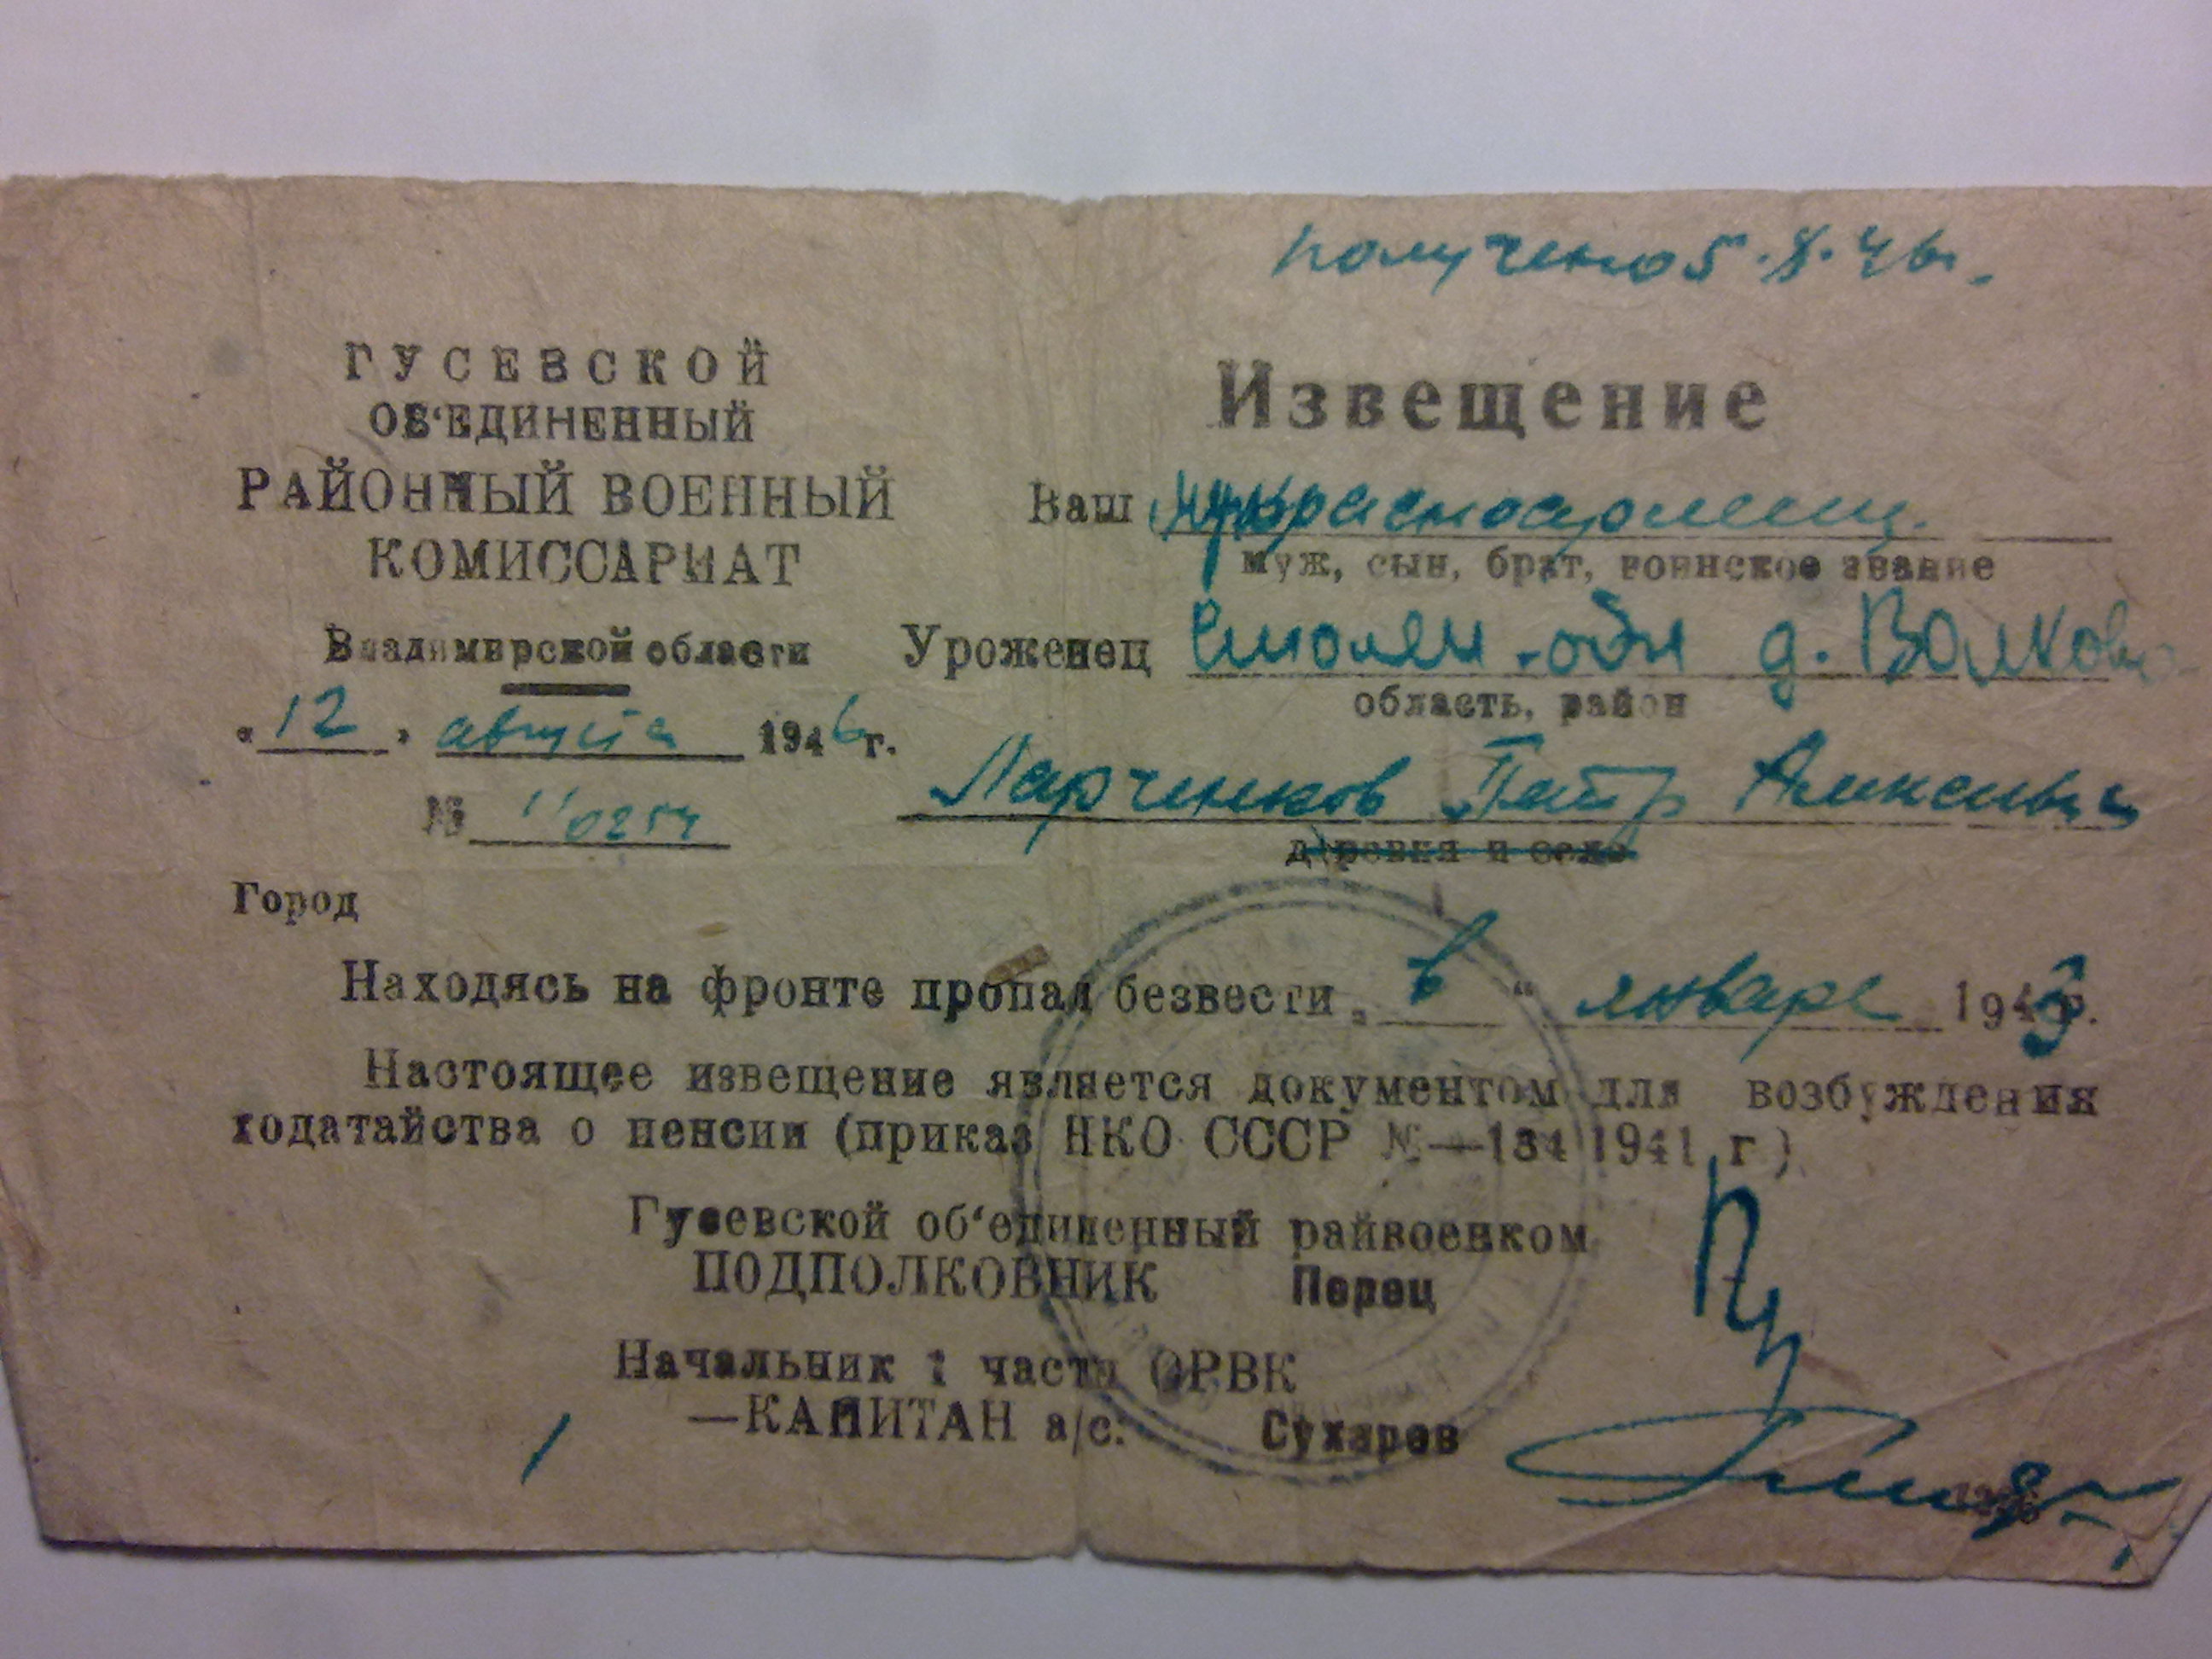 получено 5.X.46г.
ГУСЕВСКОЙ
ОБ‘ЕДИНЕННЫЙ
РАЙОННЫЙ ВОЕННЫЙ
КОМИССАРИАТ
Владимирской области
„12“ августа 1946 г.
№ 11/0254
Город
Извещение
Ваш муж красноармеец
муж, сын, брат, воинское звание
Уроженец Смолен. обл д. Волково
область, район
Ларченков Петр Алексеевич
деревня и село
Находясь на фронте пропал безвести „в“ январе 1943г.
Настоящее извещение является документом для возбуждения
ходатайства о пенсии (приказ НКО СССР №—134 1941 г)
Гусевской об‘единенный райвоенком
ПОДПОЛКОВНИК Перец
Начальник 1 части ОРВК
—КАПИТАН а/с: Сухарев